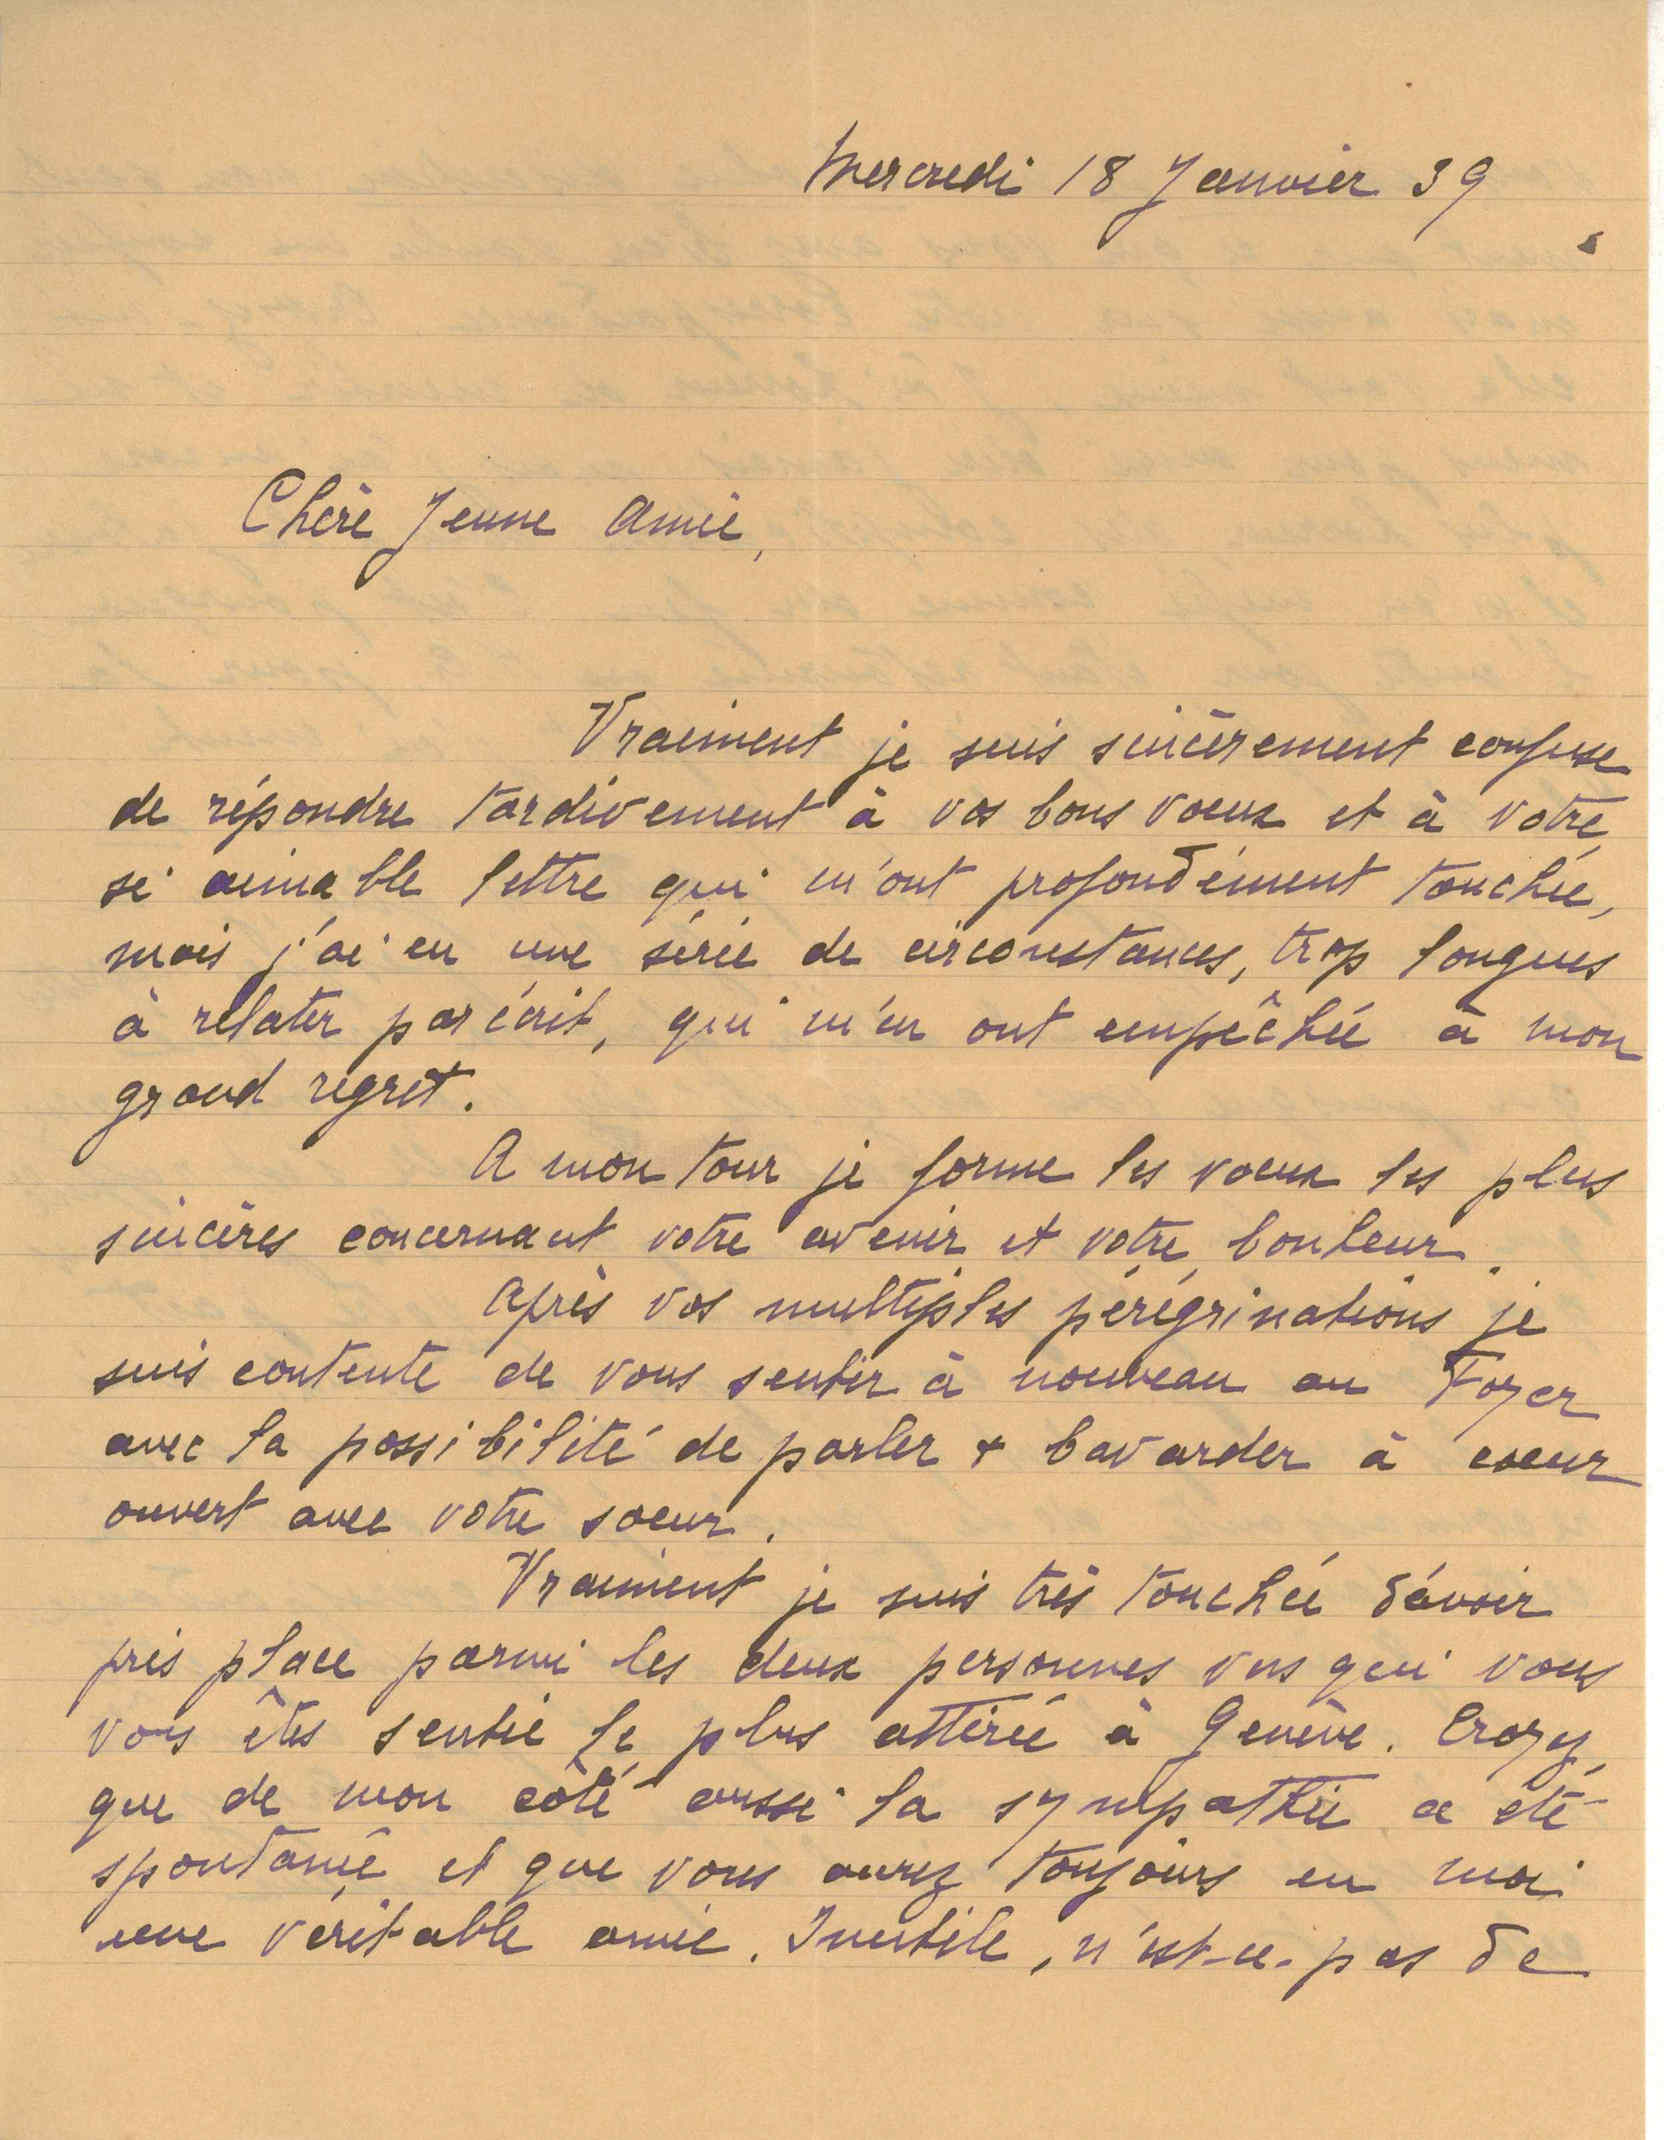 Mercredi 18 Janvier 39
Chère Jeune Amie,
Vraiment je suis sincèrement confuse
de répondre tardivement à vos bons voeux et à votre
si aimable lettre qui m'ont profondément touchée,
mais j'ai eu une série de circonstances, trop longues
à relater par écrit, qui m'en ont empêchée à mon
grand regret.
A mon tour je forme les voeux les plus
sincères concernant votre avenir et votre bonheur.
Après vos multiples pérégrinations je
suis contente de vous sentir à nouveau au Foyer
avec la possibilité de parler + bavarder à coeur
ouvert avec votre soeur.
Vraiment je suis très touchée d'avoir
pris place parmi les deux personnes vers qui vous
vous êtes sentie le plus attirée à Genève. Croyez
que de mon côté aussi la sympathie a été
spontanée et que vous aurez toujours en moi
une véritable amie. Inutile, n'est-ce-pas de